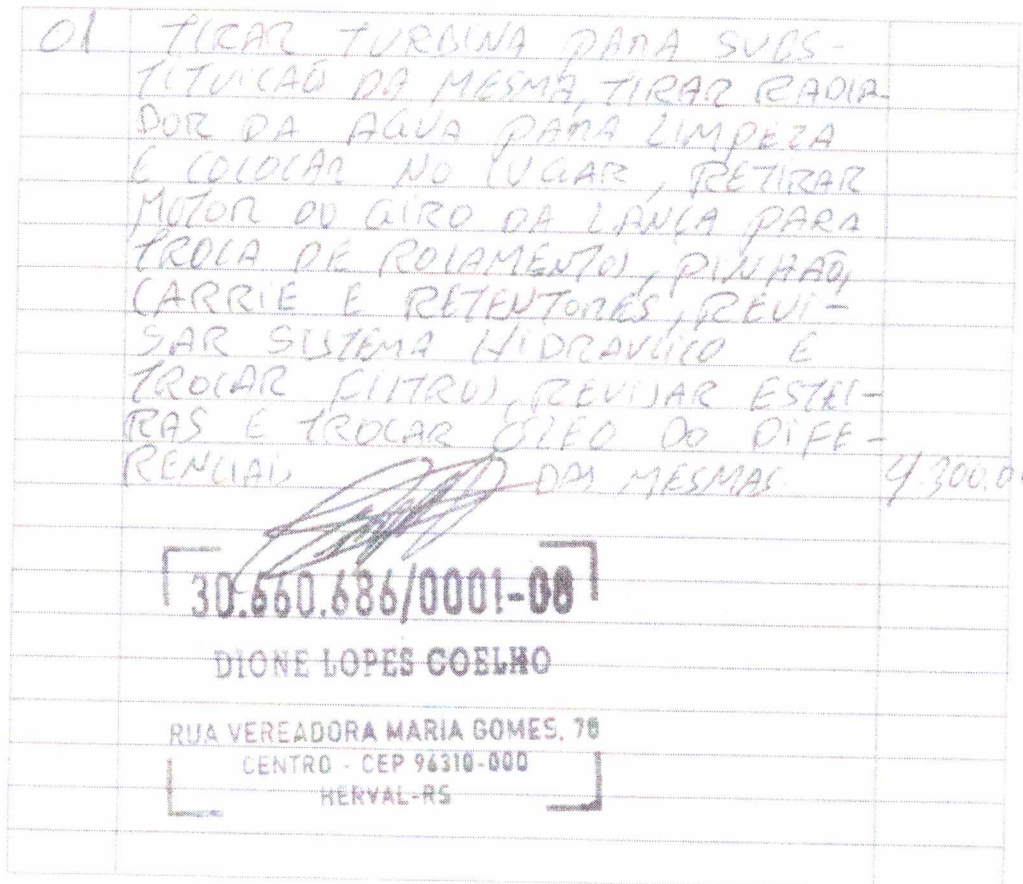 01 TIRAR TURBINA PARA SUBS-
TITUICAÕ DA MESMA, TIRAR RADIA-
DOR DA AGUA PARA LIMPEZA
E COLOCAR NO LUGAR, RETIRAR
MOTOR DO GIRO DA LANÇA PARA
TROCA DE ROLAMENTOS, PINHAÕ,
CARRIE E RETENTORES, REVI-
SAR SISTEMA HIDRAULICO E
TROCAR FILTROS, REVISAR ESTEI-
RAS E TROCAR ÓLEO DO DIFE-
RENCIAIS DAS MESMAS. 4.300.0
30.660.686/0001-08
DIONE LOPES COELHO
RUA VEREADORA MARIA GOMES, 78
CENTRO - CEP 96310-000
HERVAL-RS